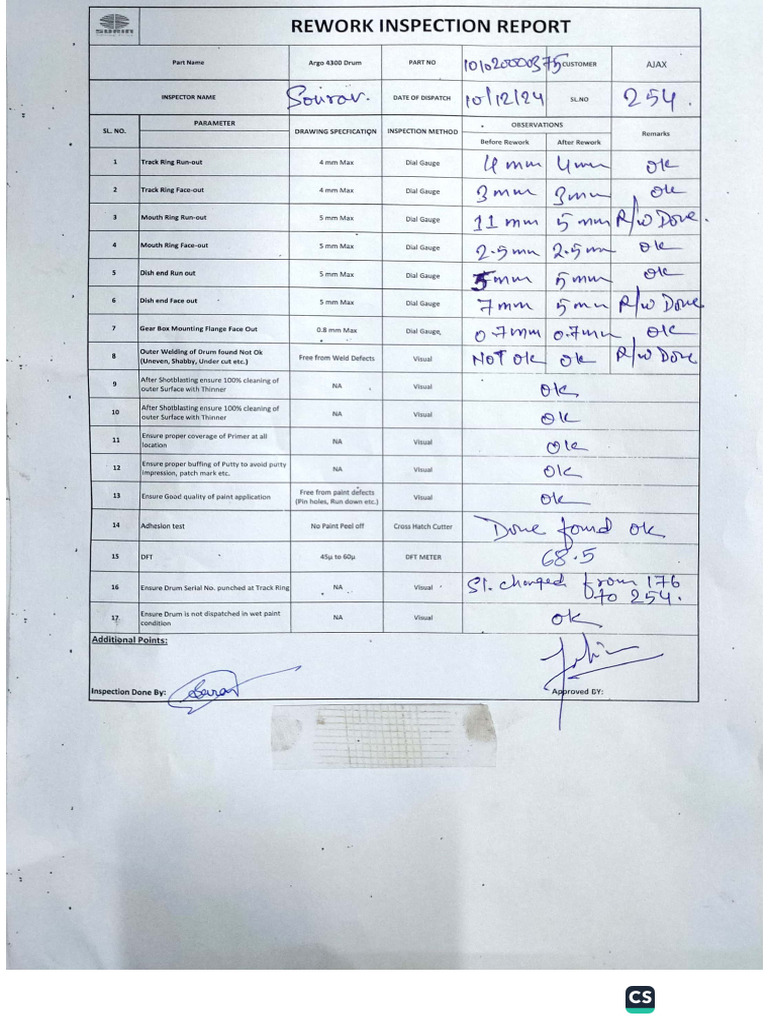 REWORK INSPECTION REPORT
Part Name Argo 4300 Drum PART NO 101020000375 CUSTOMER AJAX
INSPECTOR NAME Sourav. DATE OF DISPATCH 10/12/24 SL.NO 254.
SL. NO. PARAMETER DRAWING SPECFICATION INSPECTION METHOD OBSERVATIONS Remarks
Before Rework After Rework
1 Track Ring Run-out 4 mm Max Dial Gauge 4 mm 4 mm ok
2 Track Ring Face-out 4 mm Max Dial Gauge 3 mm 3 mm ok
3 Mouth Ring Run-out 5 mm Max Dial Gauge 11 mm 5 mm R/w Done.
4 Mouth Ring Face-out 5 mm Max Dial Gauge 2.5 mm 2.5 mm ok
5 Dish end Run out 5 mm Max Dial Gauge 5 mm 5 mm ok
6 Dish end Face out 5 mm Max Dial Gauge 7 mm 5 mm R/w Done
7 Gear Box Mounting Flange Face Out 0.8 mm Max Dial Gauge, 0.7 mm 0.7 mm ok
8 Outer Welding of Drum found Not Ok Free from Weld Defects Visual NOT Ok ok R/w Done
(Uneven, Shabby, Under cut etc.)
9 After Shotblasting ensure 100% cleaning of NA Visual ok
outer Surface with Thinner
10 After Shotblasting ensure 100% cleaning of NA Visual ok
outer Surface with Thinner
11 Ensure proper coverage of Primer at all NA Visual ok
location
12 Ensure proper buffing of Putty to avoid putty NA Visual ok
impression, patch mark etc.
13 Ensure Good quality of paint application Free from paint defects Visual ok
(Pin holes, Run down etc.)
14 Adhesion test No Paint Peel off Cross Hatch Cutter Done found ok
15 DFT 45µ to 60µ DFT METER 68.5
16 Ensure Drum Serial No. punched at Track Ring NA Visual Sl. changed from 176
to 254.
17 Ensure Drum is not dispatched in wet paint NA Visual ok
condition
Additional Points:
Inspection Done By: Approved BY:
CS